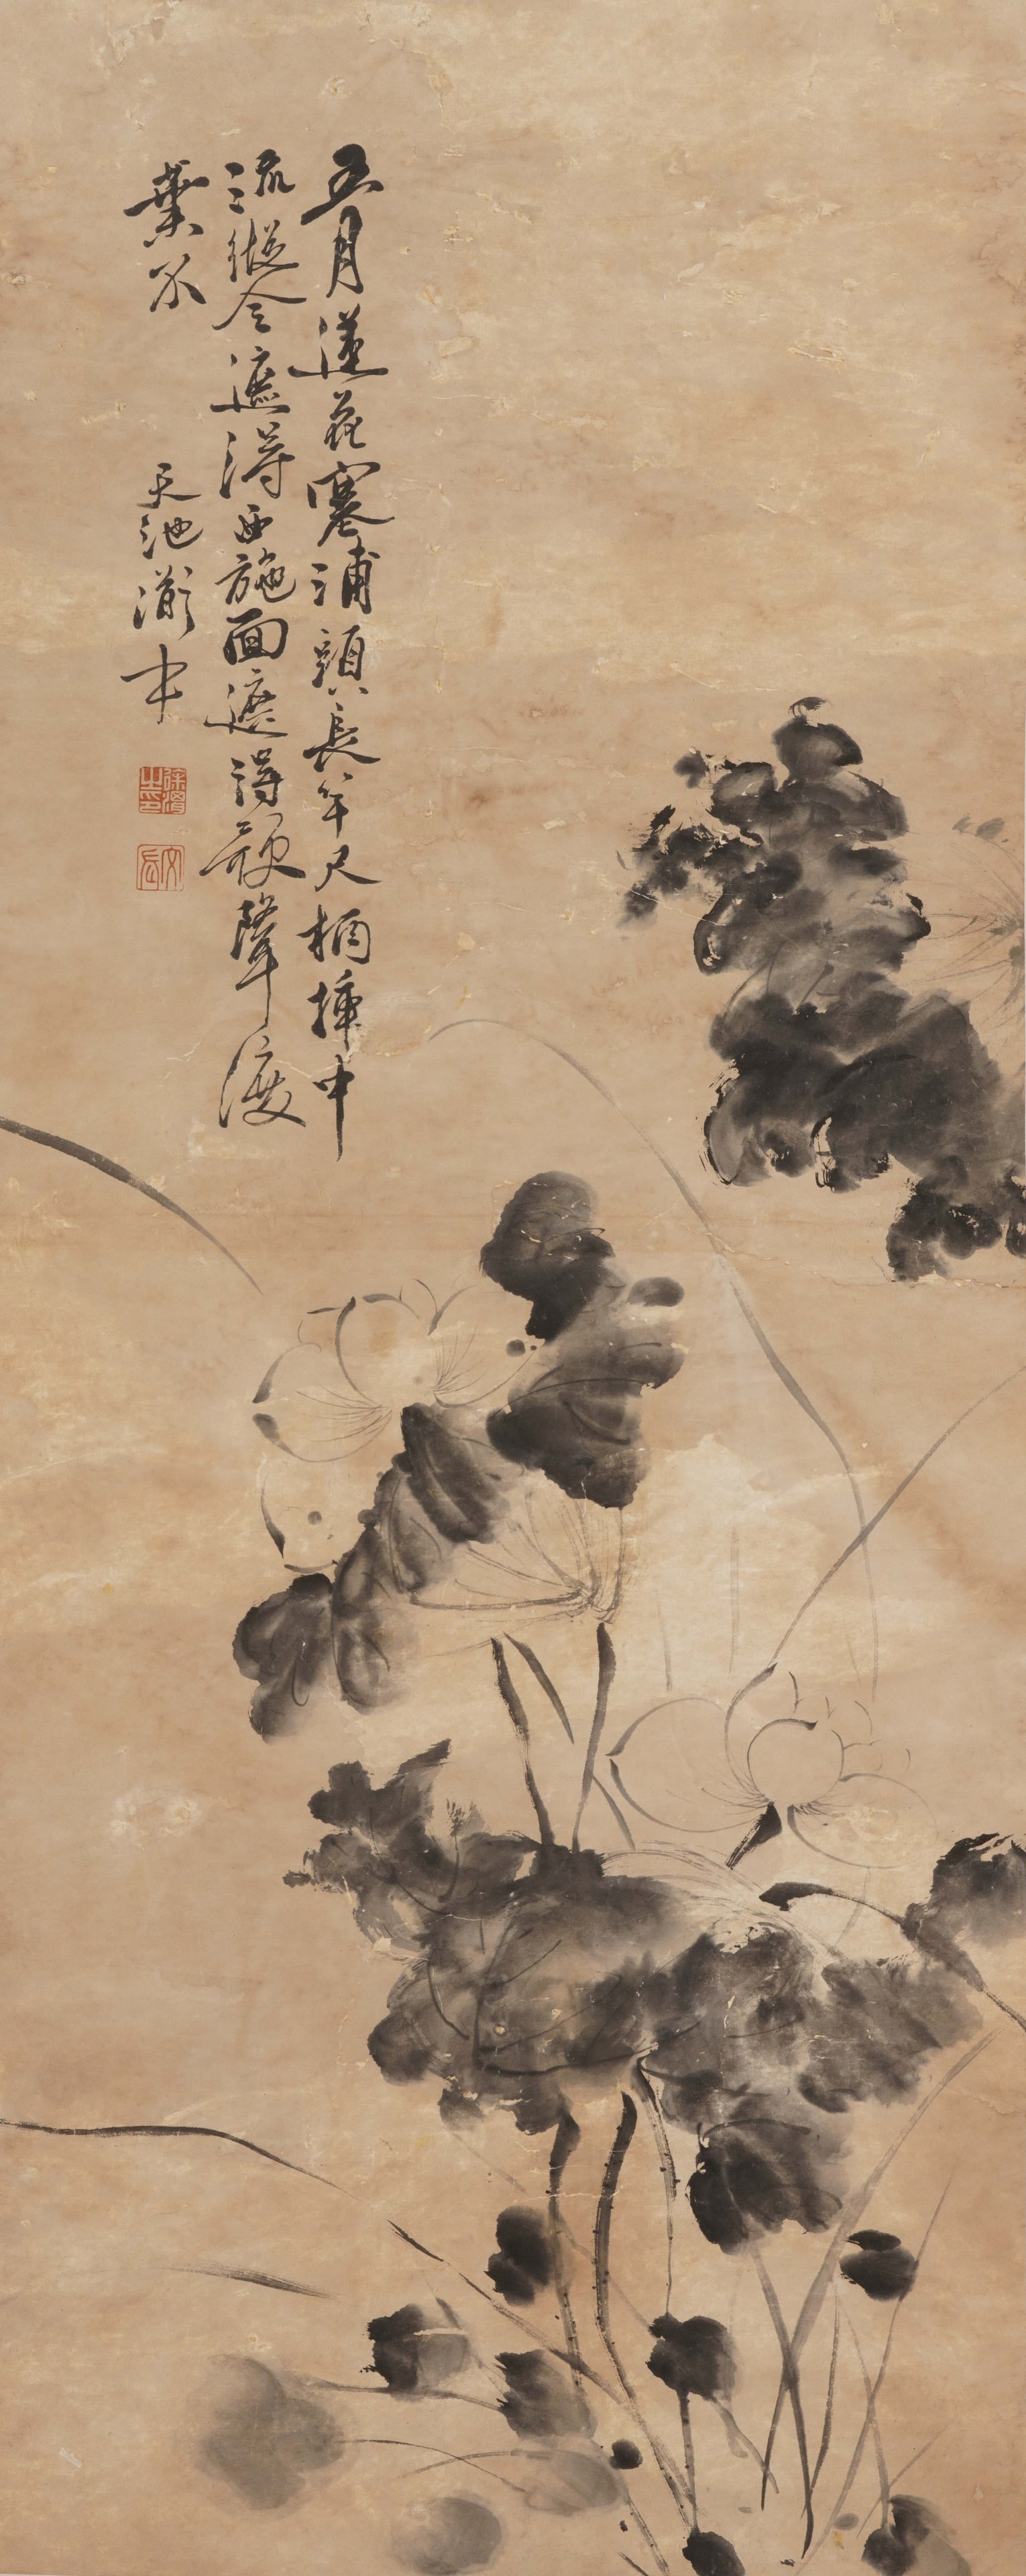 五月蓮花塞浦頭長竿尺柄揷中
流縱令遮得西施面遮得歌聲渡
葉不
天池漱中
徐渭之印
文長